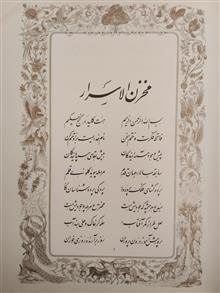 مخزن الاسرار
بسم الله الرحمن الرحیم هست کلید در گنج حکیم
فاتحه فکرت و ختم سخن نام خدایست بر او ختم کن
پیش وجود همه آیندگان بیش بقای همه پایندگان
سابقه سالار جهان قدم مرسله پیوند گلوی قلم
پرده گشای فلک پرده دار پردگی پرده شناسان کار
مبدع هر چشمه که جودیش هست مخترع هر چه وجودیش هست
لعل طراز کمر آفتاب حله گر خاک و حلی بند آب
پرورش آموز درون پروران روز برآرنده روزی خوران